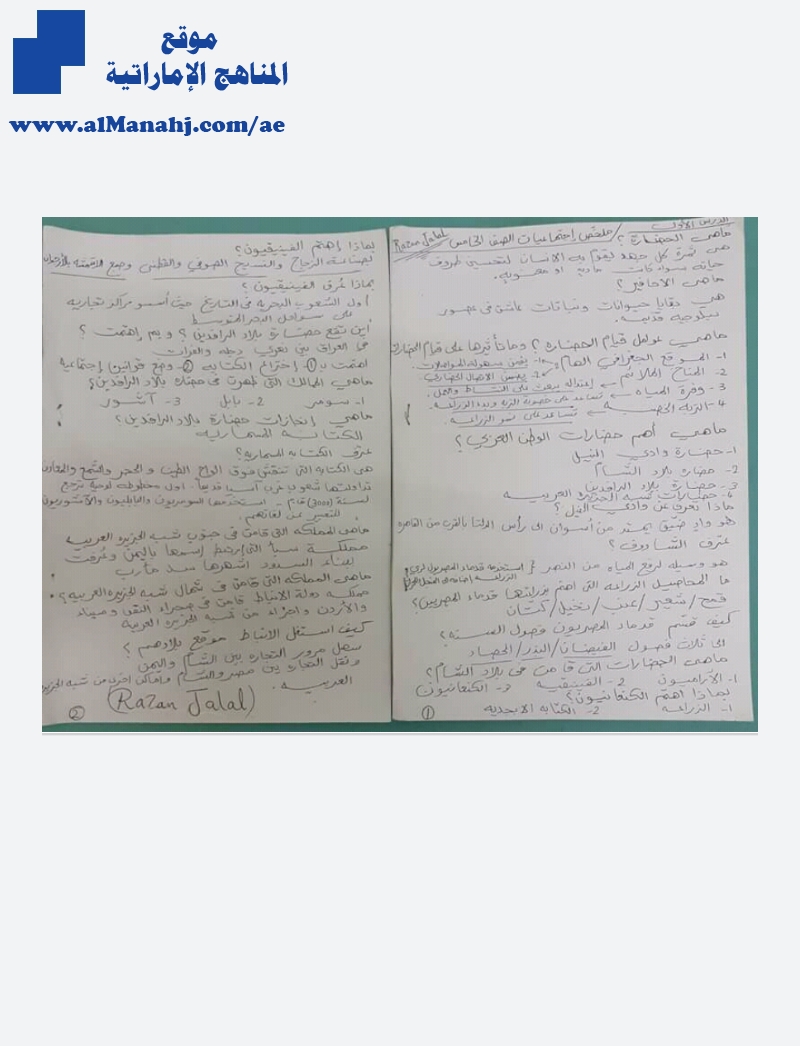 موقع
المناهج الإماراتية
www.alManahj.com/ae
الدرس الأول / ملخص إجتماعيات الصف الخامس Razan Jalal
ماهي الحضارة؟
هي ثمرة كل جهد يقوم به الانسان لتحسين ظروف
حياته سواء كانت مادية او معنوية.
ماهي الاحافير؟
هي بقايا حيوانات ونباتات عاشت في عصور
جيولوجية قديمة.
ماهي عوامل قيام الحضارة؟ وما تأثيرها على قيام الحضارات
1- الموقع الجغرافي الهام ← 1- يضمن سهولة المواصلات.
2- يضمن الاتصال الحضاري
2- المناخ الملائم ← إعتداله يبعث على النشاط والعمل
3- وفرة المياه ← تساعد على خصوبة التربة وزيادة الزراعة.
4- التربة الخصبة ← تساعد على نمو الزراعة.
ماهي أهم حضارات الوطن العربي؟
1- حضارة وادي النيل
2- حضارة بلاد الشام
3- حضارة بلاد الرافدين
4- حضارات شبه الجزيرة العربية
ماذا تعرف عن وادي النيل؟
هو وادٍ ضيق يمتد من أسوان الى رأس الدلتا بالقرب من القاهرة
عرف الشادوف؟
هو وسيلة لرفع المياه من النهر { استخدمه قدماء المصريون لري
الزراعية
ما المحاصيل الزراعية التي اهتم بزراعتها قدماء المصريين؟
قمح / شعير / عنب / نخيل / كتان
كيف قسم قدماء المصريون فصول السنة؟
الى ثلاث فصول الفيضان / البذر / الحصاد
ماهي الحضارات التي قامت في بلاد الشام؟
1- الآراميون 2- الفينيقية 3- الكنعانيون
بماذا اهتم الكنعانيون؟
1- الزراعة 2- الكتابة الابجدية
1
بماذا إهتم الفينيقيون؟
لصناعة الزجاج والنسيج الصوفي والقطني وصبغ الاقمشة بالأرجوان
بماذا عُرف الفينيقيون؟
أول الشعوب البحرية في التاريخ حيث أسسو مراكز تجارية
على سواحل البحر المتوسط
أين تقع حضارة بلاد الرافدين؟ وبم إهتمت؟
في العراق بين نهري دجلة والفرات
اهتمت ب 1 إختراع الكتابة 2 وضع قوانين إجتماعية
ماهي الممالك التي ظهرت في حضارة بلاد الرافدين؟
1- سومر 2- بابل 3- آشور
ماهي إنجازات حضارة بلاد الرافدين؟
الكتابة المسمارية
عرف الكتابة المسمارية؟
هي الكتابة التي تنقش فوق ألواح الطين والحجر والشمع والمعادن
تداولتها شعوب غرب آسيا قديماً. اول مخطوطة لوحية ترجع
لسنة (3000) ق.م - استخدمها السومريون والبابليون والآشوريون
للتعبير عن لغاتهم.
ماهي المملكة التي قامت في جنوب شبه الجزيرة العربية
مملكة سبأ التي إرتبط إسمها باليمن وعُرفت
ببناء السدود اشهرها سد مأرب
ماهي المملكة التي قامت في شمال شبه الجزيرة العربية؟
مملكة دولة الانباط قامت في صحراء النقب وسيناء
والأردن واجزاء من شبه الجزيرة العربية
كيف استغل الانباط موقع بلادهم؟
سهل مرور التجارة بين الشام واليمن
ونقل التجارة بين مصر والشام وأماكن اخرى من شبه الجزيرة
العربية.
(Razan Jalal)
2